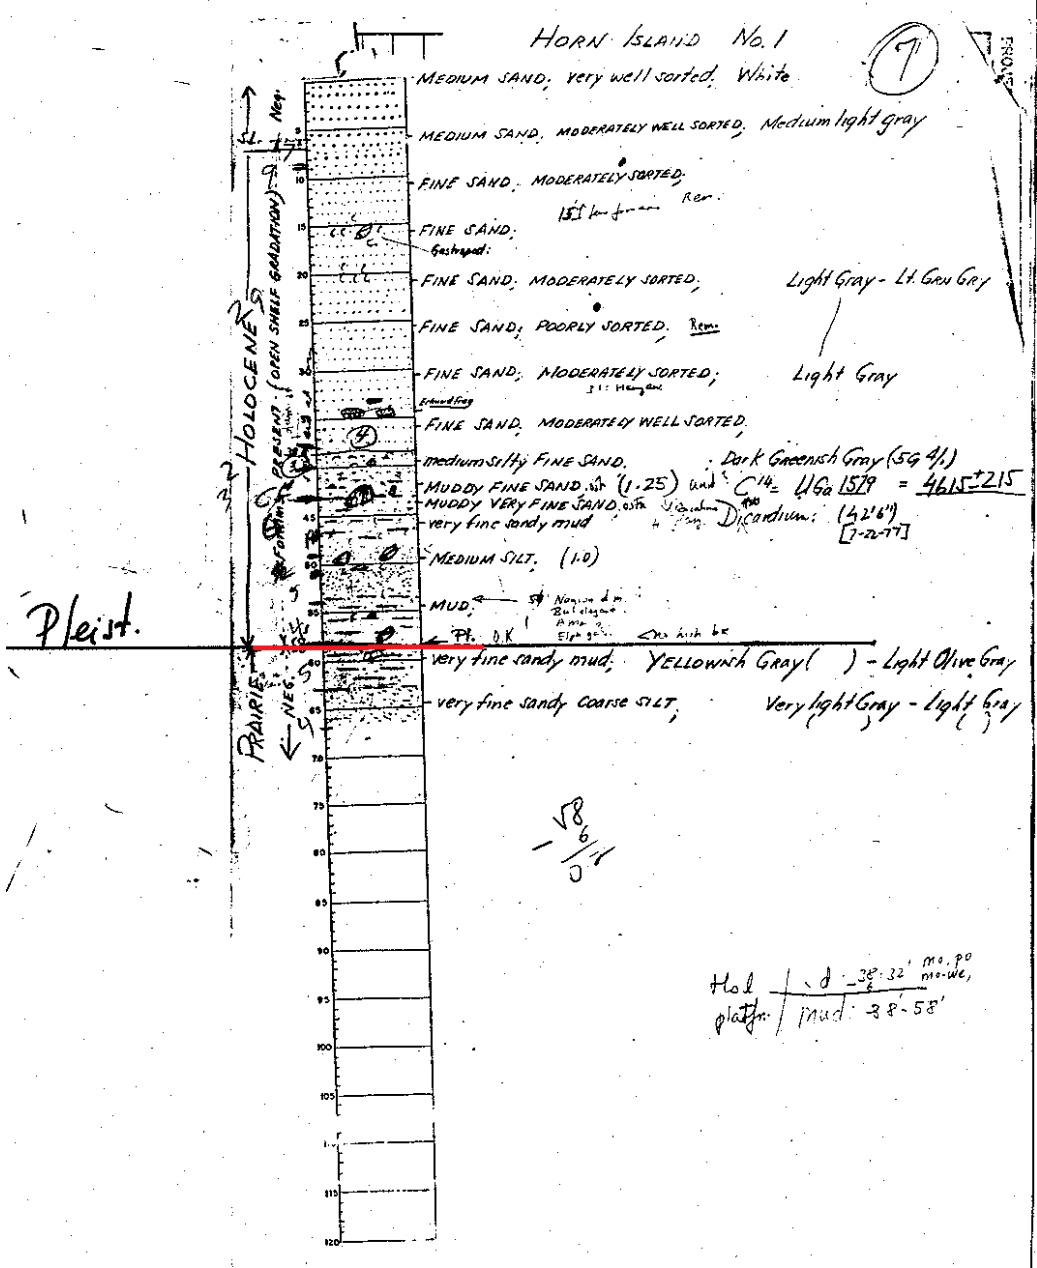 HORN ISLAND No. 1
7
MEDIUM SAND; very well sorted; White
MEDIUM SAND; MODERATELY WELL SORTED; Medium light gray
FINE SAND; MODERATELY SORTED;
Rem.
FINE SAND;
Gastropod:
FINE SAND; MODERATELY SORTED; Light Gray - Lt. GRN GRY
FINE SAND; POORLY SORTED; Rem.
FINE SAND; MODERATELY SORTED; Light Gray
FINE SAND; MODERATELY WELL SORTED;
medium silty FINE SAND. Dark Greenish Gray (5G 4/1)
MUDDY FINE SAND (1.25) C14 = UGa 1579 = 4615±215
MUDDY VERY FINE SAND Dicardium: (42'6")
very fine sandy mud [7-22-77]
MEDIUM SILT. (1.0)
MUD;
Pt. O.K
very fine sandy mud; YELLOWISH GRAY ( ) - Light Olive Gray
very fine sandy coarse SILT; Very light Gray - Light Gray
( ) ( )
Neg.
HOLOCENE
PRESENT - (OPEN SHELF GRADATION)
Pleist.
PRAIRIE
NEG.
5
10
15
20
25
30
4
45
55
60
65
70
75
80
85
90
95
100
105
115
120
58
- 6
0
Hol 38-32' mo. po
mo-we,
platfn. mud: 38'-58'